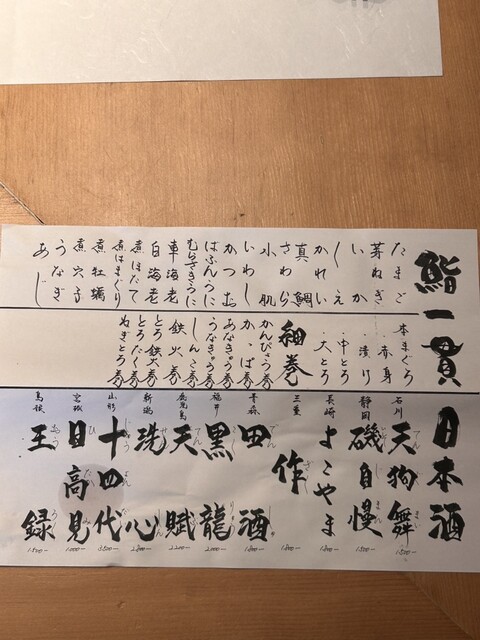 鮨一貫
たまご
芽ねぎ
いか
かれい
真鯛
さわら
小肌
いわし
かつお
はふんうに
むらさきうに
車海老
白海老
煮ほたて
煮はまぐり
煮牡蠣
煮穴子
うなぎ
あじ
本まぐろ
・赤身
・漬け
・中とろ
・大とろ
細巻
かんぴょう巻
かっぱ巻
あなきゅう巻
うなきゅう巻
しんこ巻
鉄火巻
とろ鉄火巻
とろたく巻
ねぎとろ巻
日本酒
石川 天狗舞
静岡 磯自慢
長崎 よこやま
三重 作
青森 田酒
福井 黒龍
鹿児島 天賦
新潟 洗心
山形 十四代
宮城 日高見
島根 王録